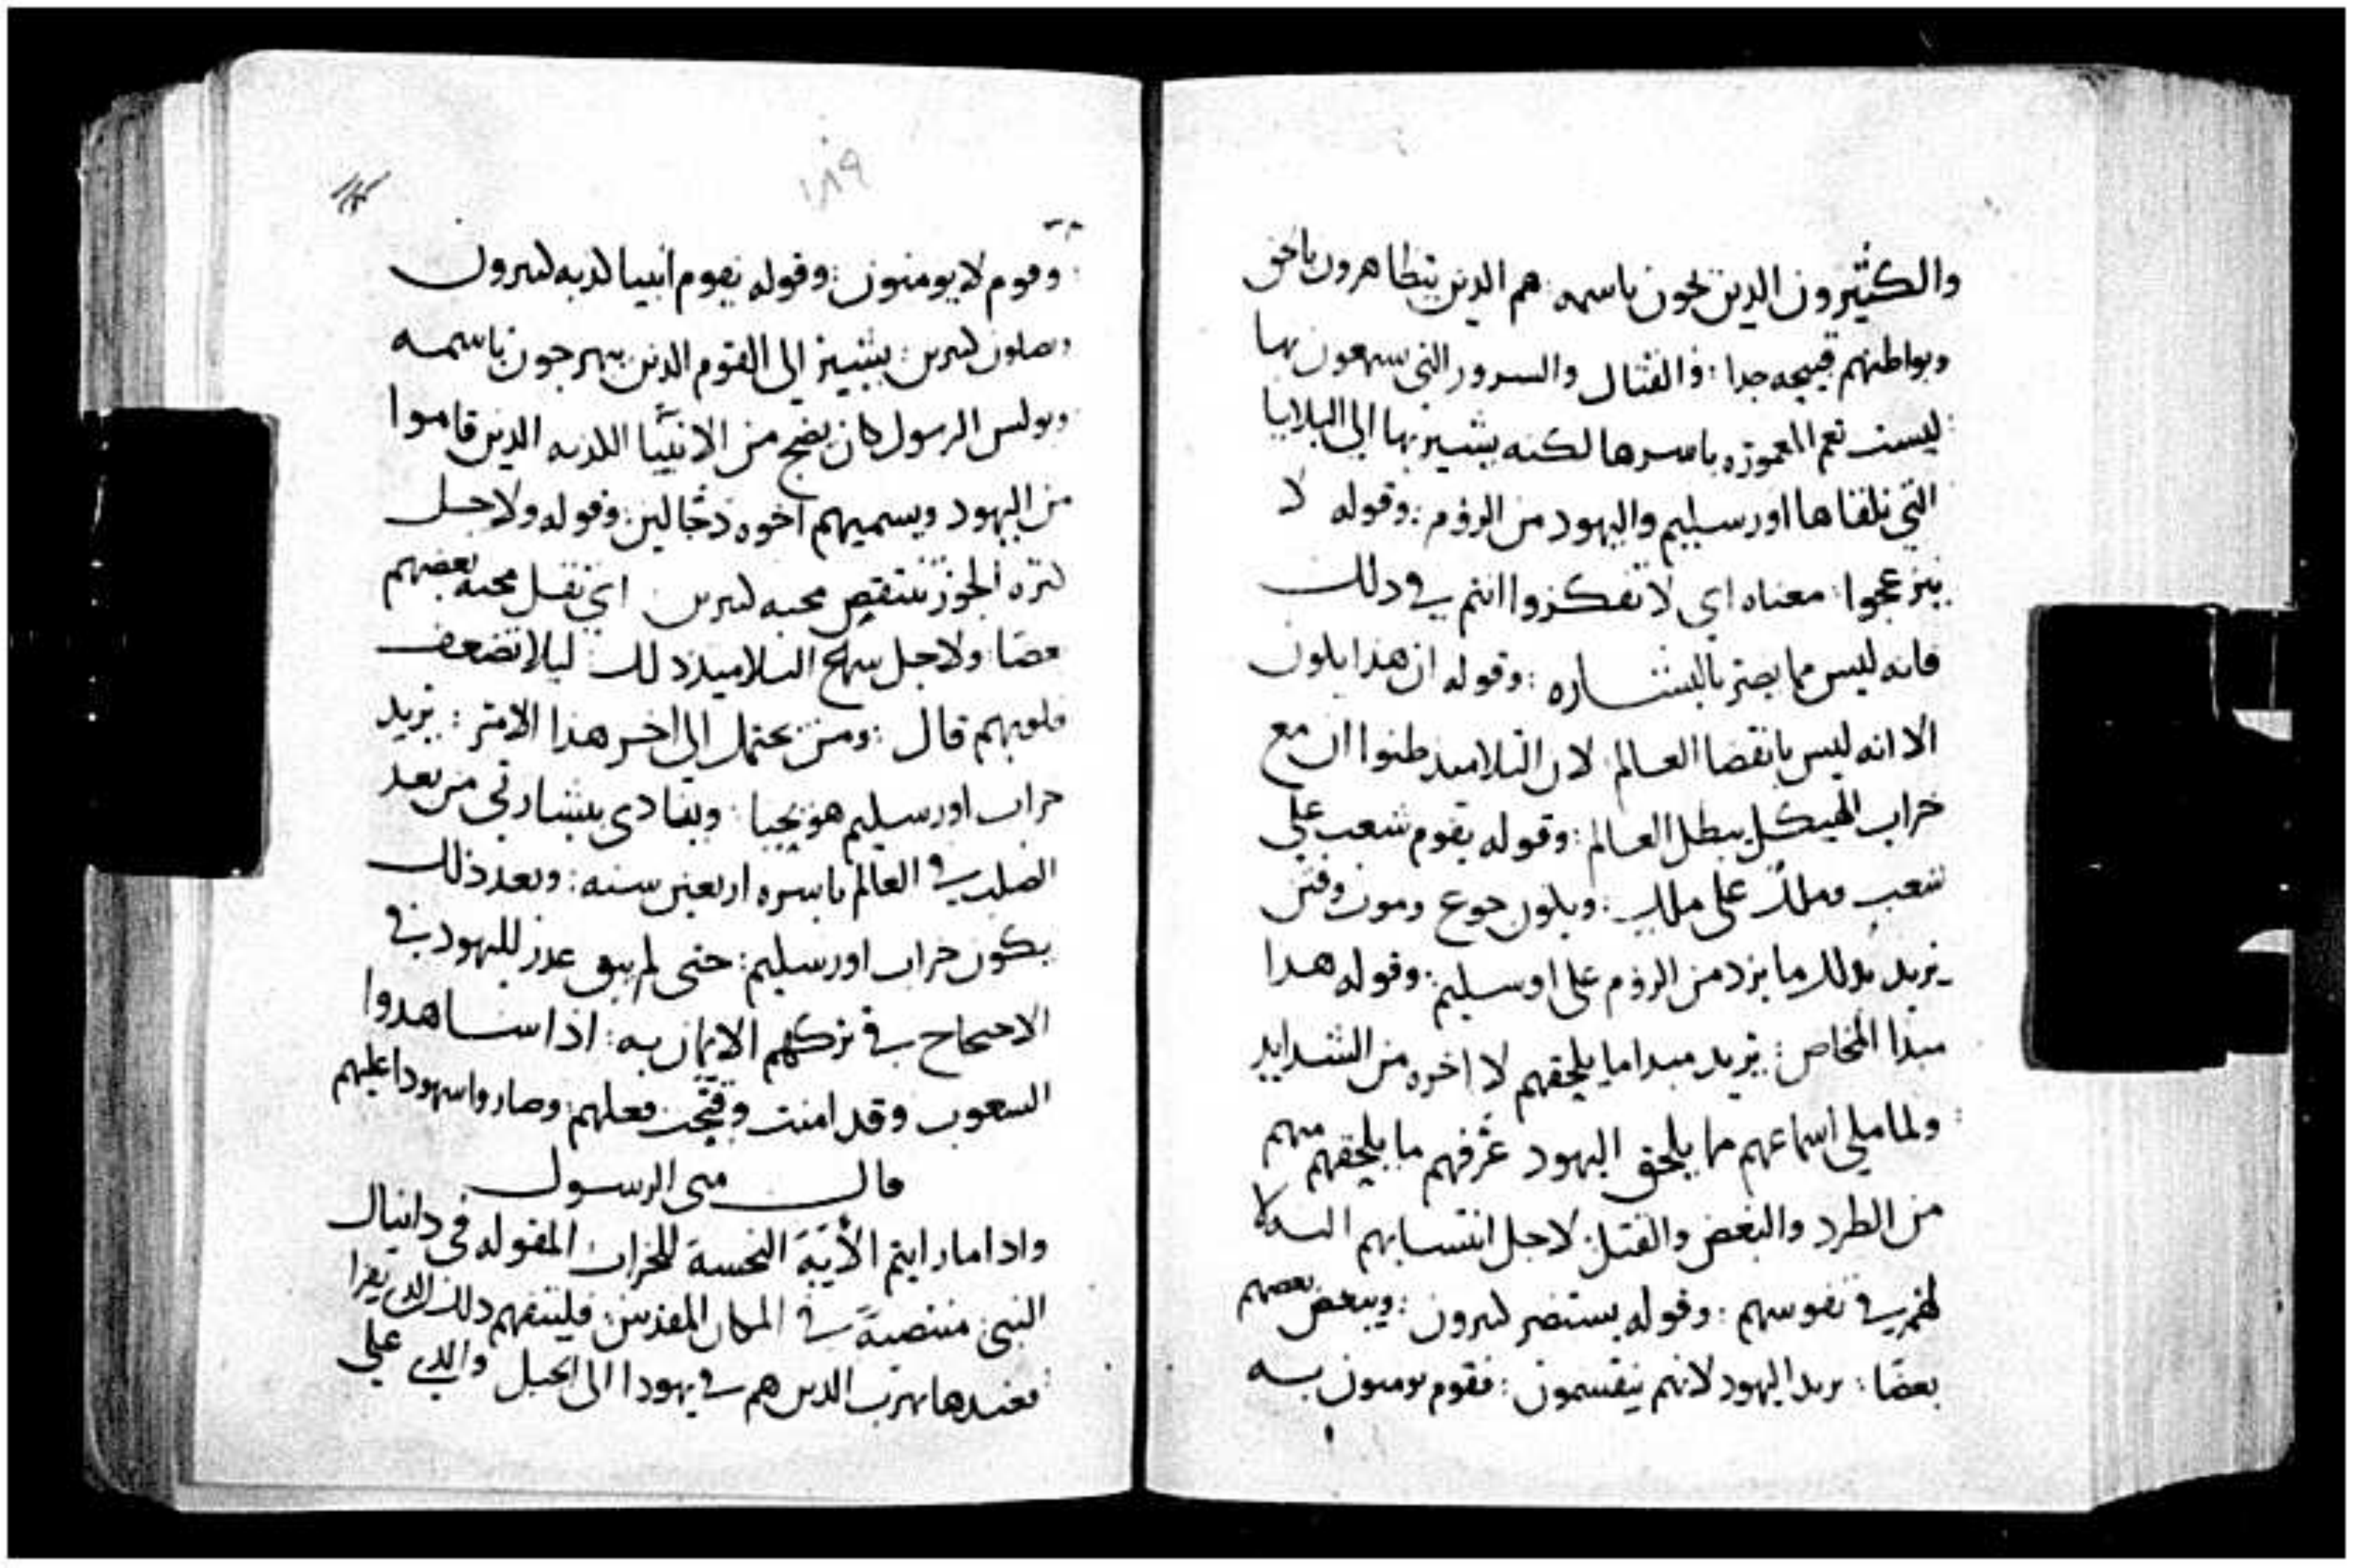 والكثيرون الدين يحون باسمه هم الدين يتظاهرون بالحق
وبواطنهم قبيحه جدا : والقتال والسرور التي سمعون بها
ليست تعم المعموره باسرها لكنه يشير بها الى البلايا
التي تلقاها اورسليم واليهود من الروم : وقوله لا
ينزعجوا : معناه اي لا تفكروا انتم في دلك
فانه ليس مما يضر بالبشاره : وقوله ان هدا يكون
الا انه ليس بانقضا العالم لان التلاميد ظنوا ان مع
خراب الهيكل يبطل العالم : وقوله يقوم شعب علي
شعب وملك على ملك : ويكون جوع وموت وفتن
يريد بدلك ما يرد من الروم على اوسليم : وقوله هدا
مبدا المخاض : يريد مبدا ما يلحقهم لا اخره من الشدايد
ولما ملي اسماعهم مما يلحق اليهود عرفهم ما يلحقهم منهم
من الطرد والبغض والقتل لاجل انتسابهم اليه لا
لهم في نفوسهم : وقوله يستضر كثيرون : ويبغض بعضهم
بعضا : يريد اليهود لانهم ينقسمون : فقوم يومنون به
١٨٩
وقوم لا يومنون : وقوله يقوم انبيا كدبه كثيرون
ويضلون كثيرين : يشير الى القوم الدين يبهرجون باسمه
وبولس الرسول كان يضج من الانبيا الكدبه الدين قاموا
من اليهود ويسميهم اخوه دجالين : وقوله ولاجل
كثره الجور تنتقص محبه كثيرين اي تقل محبه بعضهم
بعضا : ولاجل سماع التلاميد دلك ليلا تضعف
قلوبهم قال : ومن يحتمل الى اخر هدا الامر : يريد
خراب اورسليم هو يحيا : وينادى ببشارتي من بعد
الصلب في العالم باسره اربعين سنه : وبعد ذلك
يكون خراب اورسليم : حتى لم يبق عدر لليهود في
الاحتجاج في تركهم الايمان به : ادا شاهدوا
الشعوب وقد امنت وقبحت فعلهم وصاروا شهودا عليهم
قال متى الرسول
وادا ما رايتم الآية النجسة للخراب المقوله في دانيال
النبي منتصبة في المكان المقدس فليتفهم دلك الدي يقرا
فعندها يهرب الدين هم في يهودا الى الجبل والدي علي